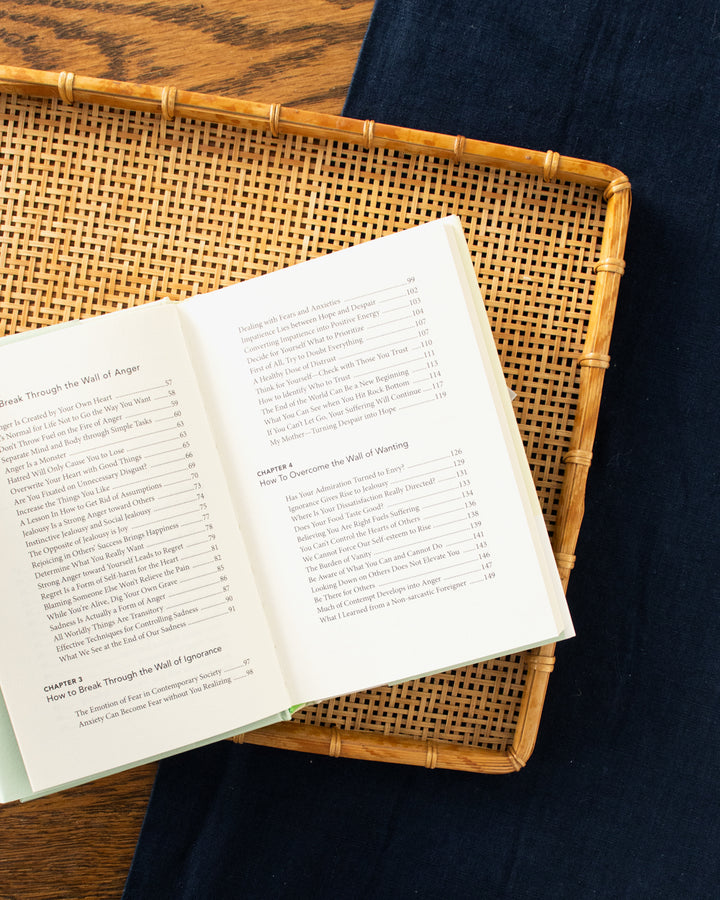 Break Through the Wall of Anger
nger Is Created by Your Own Heart 57
's Normal for Life Not to Go the Way You Want 58
Don't Throw Fuel on the Fire of Anger 59
Separate Mind and Body through Simple Tasks 60
Anger Is a Monster 63
Hatred Will Only Cause You to Lose 63
Overwrite Your Heart with Good Things 65
Are You Fixated on Unnecessary Disgust? 66
Increase the Things You Like 69
A Lesson In How to Get Rid of Assumptions 70
Jealousy Is a Strong Anger toward Others 73
Instinctive Jealousy and Social Jealousy 74
The Opposite of Jealousy is Joy 75
Rejoicing in Others' Success Brings Happiness 77
Determine What You Really Want 78
Strong Anger toward Yourself Leads to Regret 79
Regret Is a Form of Self-harm for the Heart 81
Blaming Someone Else Won't Relieve the Pain 82
While You're Alive, Dig Your Own Grave 85
Sadness Is Actually a Form of Anger 86
All Worldly Things Are Transitory 87
Effective Techniques for Controlling Sadness 90
What We See at the End of Our Sadness 91
CHAPTER 3
How to Break Through the Wall of Ignorance
The Emotion of Fear in Contemporary Society 97
Anxiety Can Become Fear without You Realizing 98
Dealing with Fears and Anxieties 99
Impatience Lies between Hope and Despair 102
Converting Impatience into Positive Energy 103
Decide for Yourself What to Prioritize 104
First of All, Try to Doubt Everything 107
A Healthy Dose of Distrust 107
Think for Yourself—Check with Those You Trust 110
How to Identify Who to Trust 111
The End of the World Can Be a New Beginning 113
What You Can See when You Hit Rock Bottom 114
If You Can't Let Go, Your Suffering Will Continue 117
My Mother—Turning Despair into Hope 119
CHAPTER 4
How To Overcome the Wall of Wanting
Has Your Admiration Turned to Envy? 126
Ignorance Gives Rise to Jealousy 129
Where Is Your Dissatisfaction Really Directed? 131
Does Your Food Taste Good? 133
Believing You Are Right Fuels Suffering 134
You Can't Control the Hearts of Others 136
We Cannot Force Our Self-esteem to Rise 138
The Burden of Vanity 139
Be Aware of What You Can and Cannot Do 141
Looking Down on Others Does Not Elevate You 143
Be There for Others 146
Much of Contempt Develops into Anger 147
What I Learned from a Non-sarcastic Foreigner 149